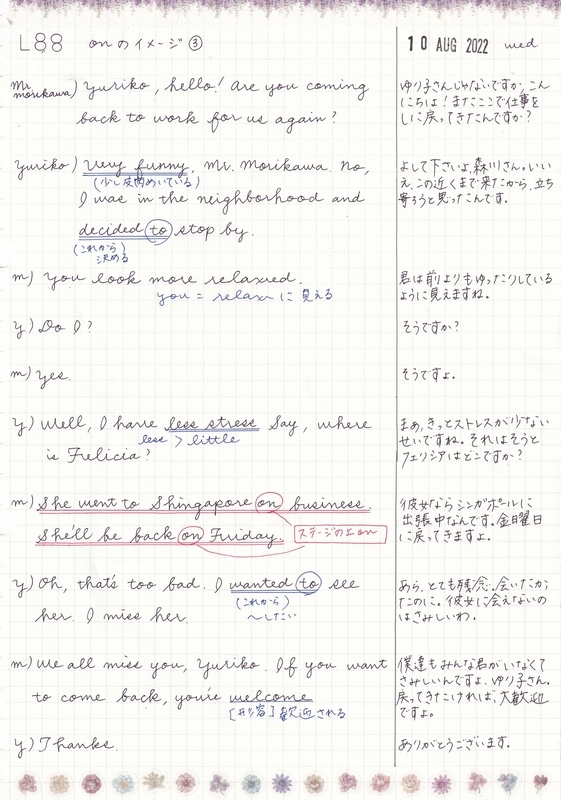 L88 onのイメージ③
10 AUG 2022 wed
Mr. morikawa) Yuriko, hello! Are you coming
back to work for us again?
ゆり子さんじゃないですか、こん
にちは!またここで仕事を
しに戻ってきたんですか?
Yuriko) Very funny, Mr. Morikawa. No,
(少し皮肉めいている)
I was in the neighborhood and
decided to stop by.
(これから)
決める
よして下さいよ、森川さん。いい
え、この近くまで来たから、立ち
寄ろうと思ったんです。
m) You look more relaxed.
you = relax に見える
君は前よりもゆったりしている
ように見えますね。
y) Do I?
そうですか?
m) Yes.
そうですよ。
y) Well, I have less stress. Say, where
less > little
is Frelicia?
まぁ、きっとストレスが少ない
せいですね。それはそうと
フェリシアはどこですか?
m) She went to Shingapore on business.
She'll be back on Friday.
ステージの上on
彼女ならシンガポールに
出張中なんです。金曜日
に戻ってきますよ。
y) Oh, that's too bad. I wanted to see
(これから)
〜したい
her. I miss her.
あら、とても残念。会いたかっ
たのに。彼女に会えないの
はさみしいわ。
m) We all miss you, Yuriko. If you want
to come back, you're welcome
[形容]歓迎される
僕達もみんな君がいなくて
さみしいんですよ、ゆり子さん。
戻ってきたければ、大歓迎
ですよ。
y) Thanks.
ありがとうございます。